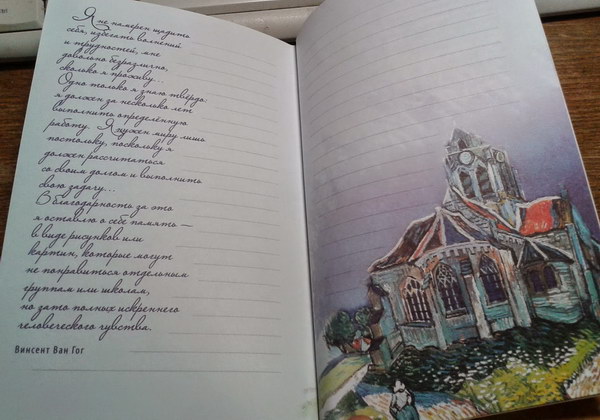 Я не намерен щадить
себя, избегать волнений
и трудностей, мне
довольно безразлично,
сколько я проживу...
Одно только я знаю твёрдо:
я должен за несколько лет
выполнить определённую
работу. Я нужен миру лишь
постольку, поскольку я
должен рассчитаться
со своим долгом и выполнить
свою задачу...
В благодарность за это
я оставлю о себе память —
в виде рисунков или
картин, которые могут
не понравиться отдельным
группам или школам,
но зато полных искреннего
человеческого чувства.
Винсент Ван Гог